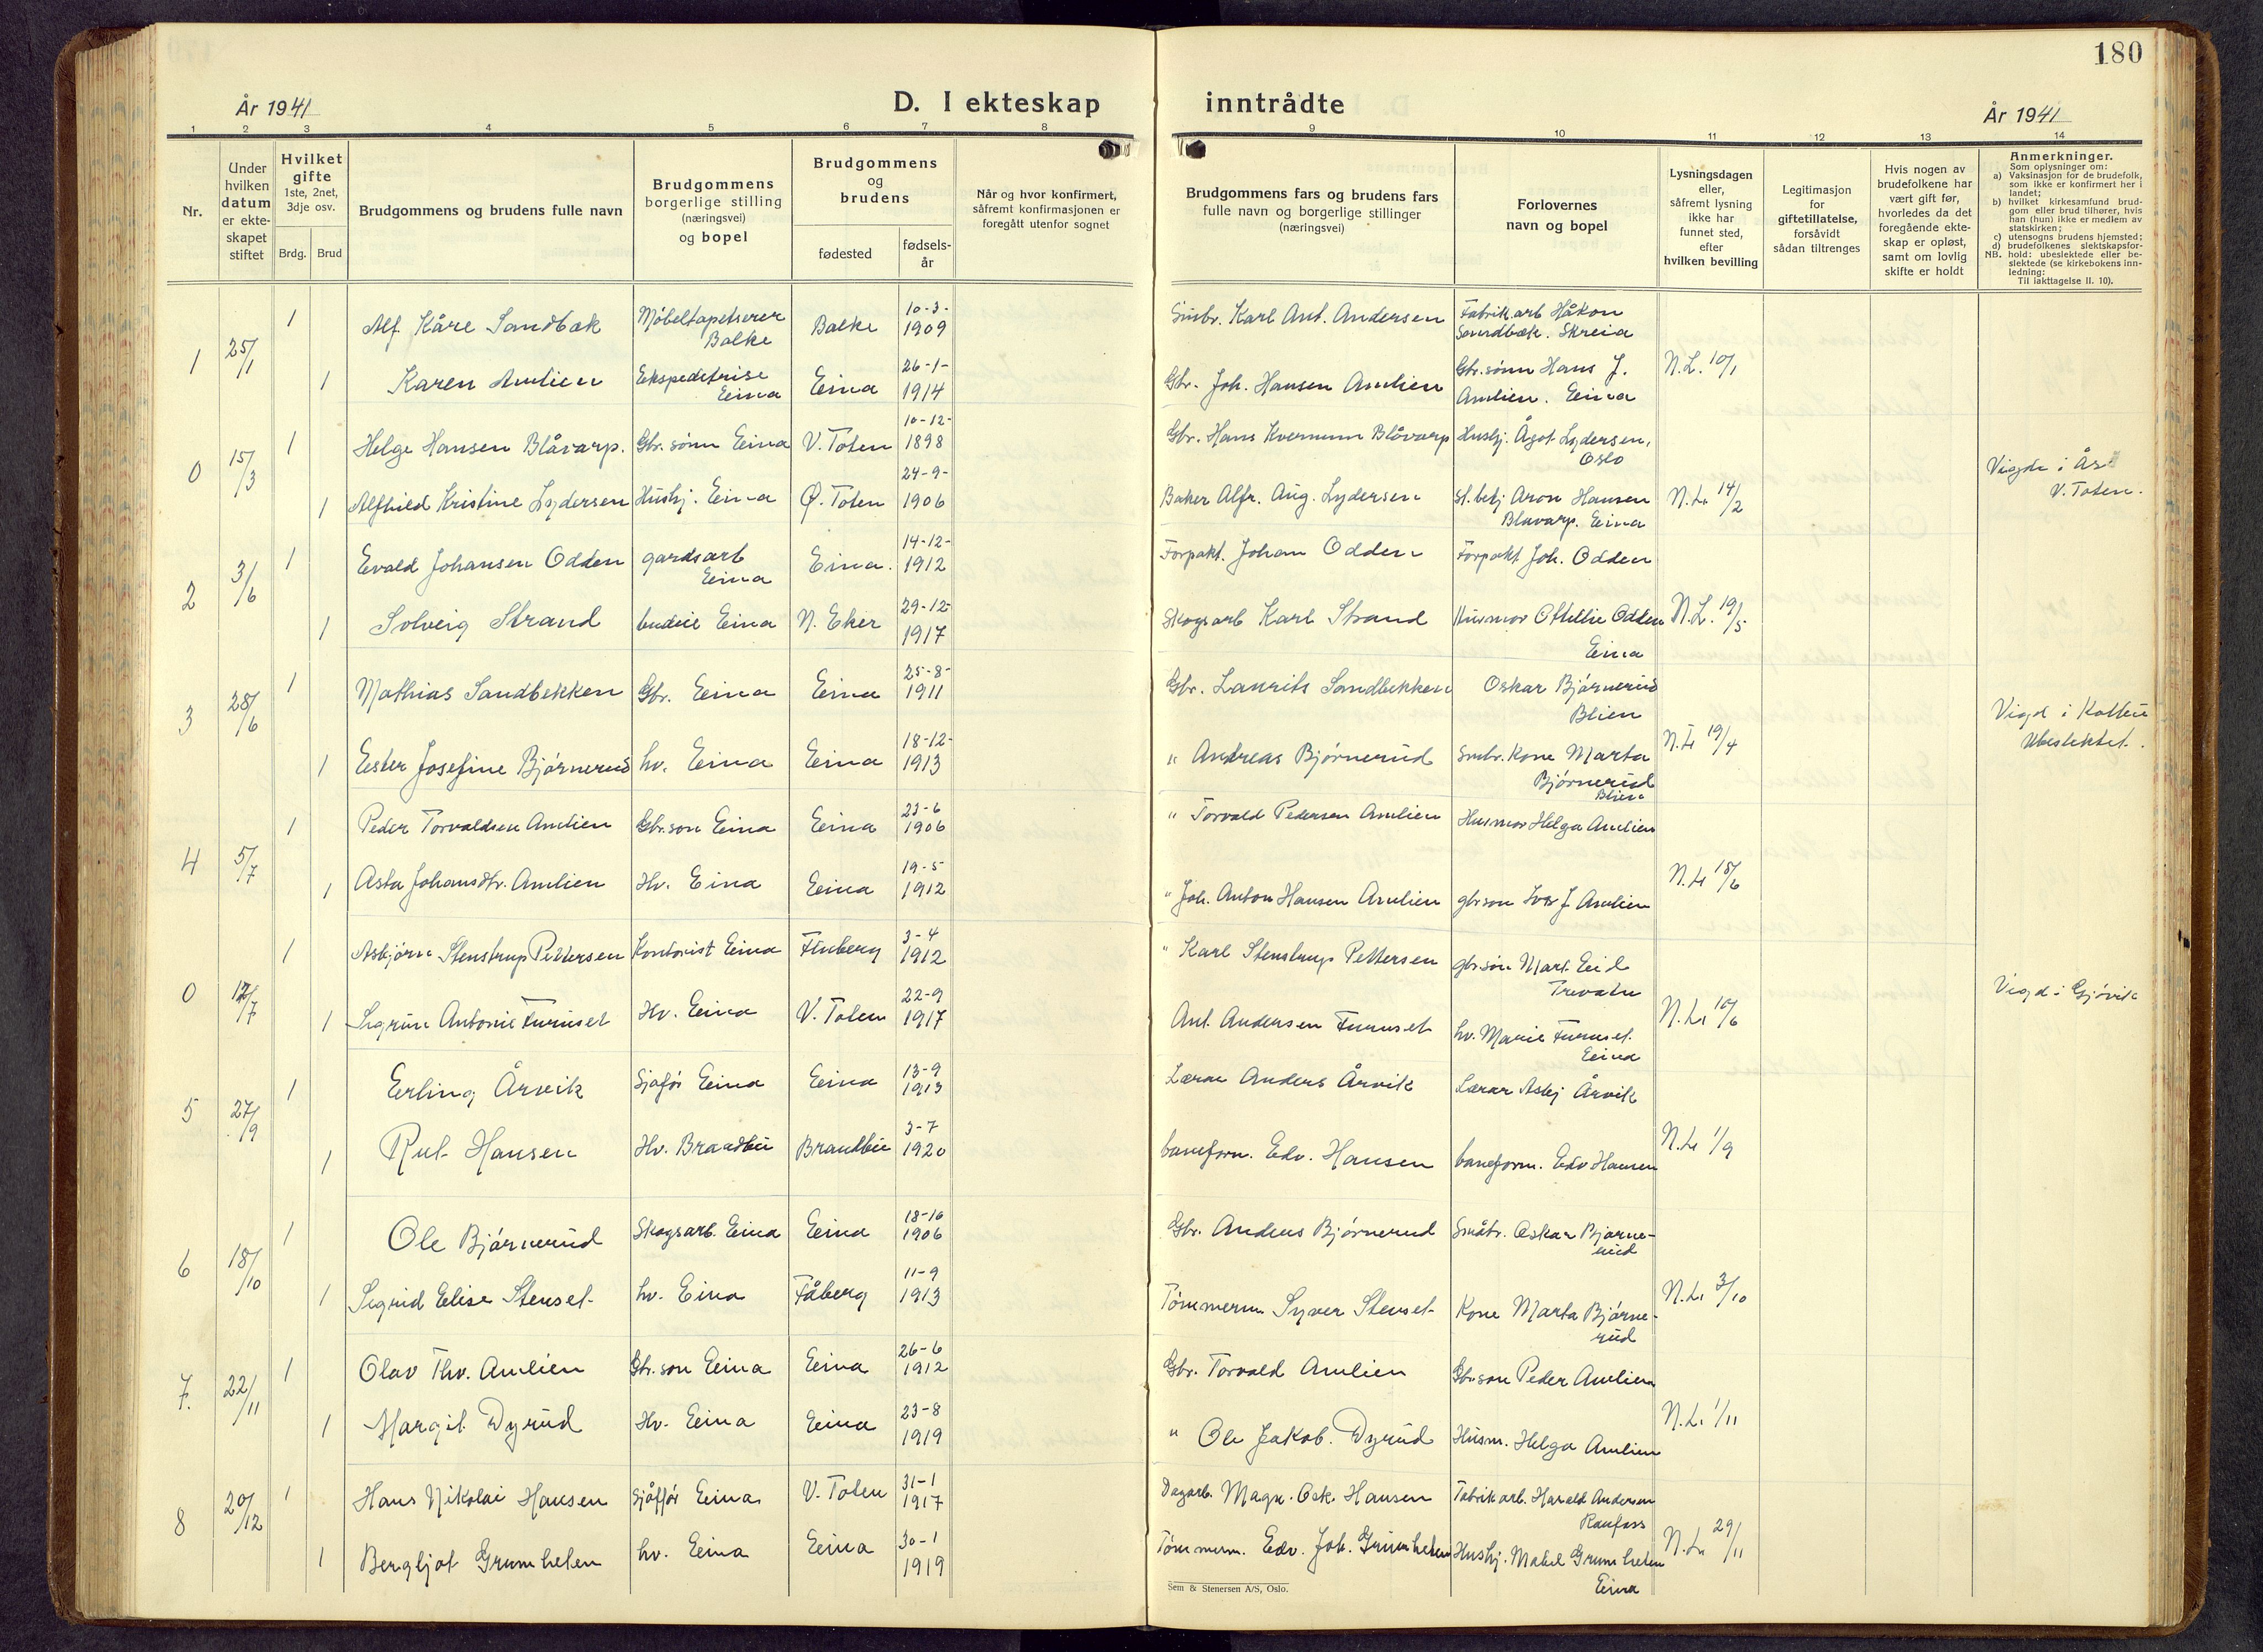 180
År 1941
D. I ekteskap inntrådte
År 1941
1 2 3 4 5 6 7 8 9 10 11 12 13 14
Nr.
Under
hvilken
datum
er ekte-
skapet
stiftet
Hvilket
gifte
1ste, 2net,
3dje osv.
Brdg. Brud
Brudgommens og brudens fulle navn
Brudgommens
borgerlige stilling
(næringsvei)
og bopel
Brudgommens
og
brudens
fødested
fødsels-
år
Når og hvor konfirmert,
såfremt konfirmasjonen er
foregått utenfor sognet
Brudgommens fars og brudens fars
fulle navn og borgerlige stillinger
(næringsvei)
Forlovernes
navn og bopel
Lysningsdagen
eller,
såfremt lysning
ikke har
funnet sted,
efter
hvilken bevilling
Legitimasjon
for
giftetillatelse,
forsåvidt
sådan tiltrenges
Hvis nogen av
brudefolkene har
vært gift før,
hvorledes da det
foregående ekte-
skap er opløst,
samt om lovlig
skifte er holdt
Anmerkninger.
Som oplysninger om:
a) Vaksinasjon for de brudefolk,
som ikke er konfirmert her i
landet;
b) hvilket kirkesamfund brud-
gom eller brud tilhører, hvis
han (hun) ikke er medlem av
statskirken;
c) utensogns brudens hjemsted;
d) brudefolkenes slektskapsfor-
NB. hold: ubeslektede eller be-
slektede (se kirkebokens inn-
ledning:
Til iakttagelse II. 10).
1 25/1
1 Alf Kåre Sandbæk Møbeltapetserer Balke Balke 10-3-1909 Karl Ant. Andersen Fabrikarb Håkon Sandbæk. Skreia
1 Karen Amlien Ekspeditrise Eina Eina 26-1-1914 Gbr. Joh. Hansen Amlien Gbr.sønn Hans J. Amlien. Eina N.L. 10/1
0 15/3
1 Helge Hansen Blåvarp. Gbr. sønn Eina V. Toten 10-12-1898 Gbr. Hans Kvernum Blåvarp Hushj. Ågot Lydersen, Oslo
1 Alfhild Kristine Lydersen Hushj. Eina Ø. Toten 24-9-1906 Baker Alfr. Aug. Lydersen St.betj Aron Hansen Blavarp. Eina N.L. 14/2 Vigde i Ås V. Toten.
2 3/6
1 Evald Johansen Odden gardsarb Eina Eina. 14-12-1912 Forpakt. Johan Odden Forpakt Joh. Odden
1 Solveig Strand budeie Eina N. Eker 29-12-1917 Skogsarb Karl Strand Husmor Ottellie Odden Eina N.L. 19/5
3 28/6
1 Mathias Sandbekken Gbr. Eina Eina 25-8-1911 Gbr. Laurits Sandbekken Oskar Bjørnerud Blien
1 Ester Josefine Bjørnerud hv. Eina Eina 18-12-1913 " Andreas Bjørnerud Smbr. Kone Marta Bjørnerud Blien N.L. 19/4 Vigd i Kolbu Ubeslektet.
4 5/7
1 Peder Torvaldsen Amlien Gbr.son Eina Eina 23-6 1906 " Torvald Pedersen Amlien Husmor Helga Amlien
1 Asta Johansdtr. Amlien Hv. Eina Eina 19-5 1912 " Joh. Anton Hansen Amlien gbrson Ivar J Amlien N.L. 18/6
0 12/7
1 Asbjørn Stenstrup Pettersen Kontorist Eina 3-4 1912 " Karl Stenstrup Pettersen gbr.søn Mart. Eid Trevatn
1 Sigrun Antonie Furuset Hv. Eina V. Toten 22-9 1917 Ant. Andersen Furuset hv. Marie Furuset. Eina N.L. 16/6 Vigd i Gjøvik
5 27/9
1 Erling Årvik Sjåfør Eina Eina 13-9 1913 Lærar Anders Årvik Lærar Asbj Årvik
1 Rut Hansen Hv. Brandbu Brandbu 3-7 1920 baneform. Edv. Hansen baneform. Edv Hansen N.L. 1/9
6 18/10
1 Ole Bjørnerud Skogsarb. Eina Eina 18-10 1906 Gbr. Anders Bjørnerud Småbr. Oskar Bjørne-rud
1 Sigrid Elise Stenset hv. Eina Fåberg 11-9 1913 Tømmerm. Syver Stenset Kone Marta Bjørne-rud N.L. 3/10
7. 22/11
1 Olav Thv. Amlien Gbr. son Eina Eina 26-6 1912 Gbr. Torvald Amlien Gbr.son Peder Amlien
1 Margit Dyrud Hv. Eina Eina 23-8 1919 " Ole Jakob. Dyrud Husm. Helga Amlien N.L. 1/11
8 20/12
1 Hans Nikolai Hansen Sjåfør Eina V. Toten 31-1 1917 Dagarb. Magn. Osk. Hansen Fabrikarb. Harald Andersen Raufoss
1 Bergljot Grumheten hv. Eina Eina 30-1 1919 Tømmerm. Edv. Joh. Grumheten Hushj. Mabel Grumheten Eina N.L. 29/11
Sem & Stenersen A/S, Oslo.